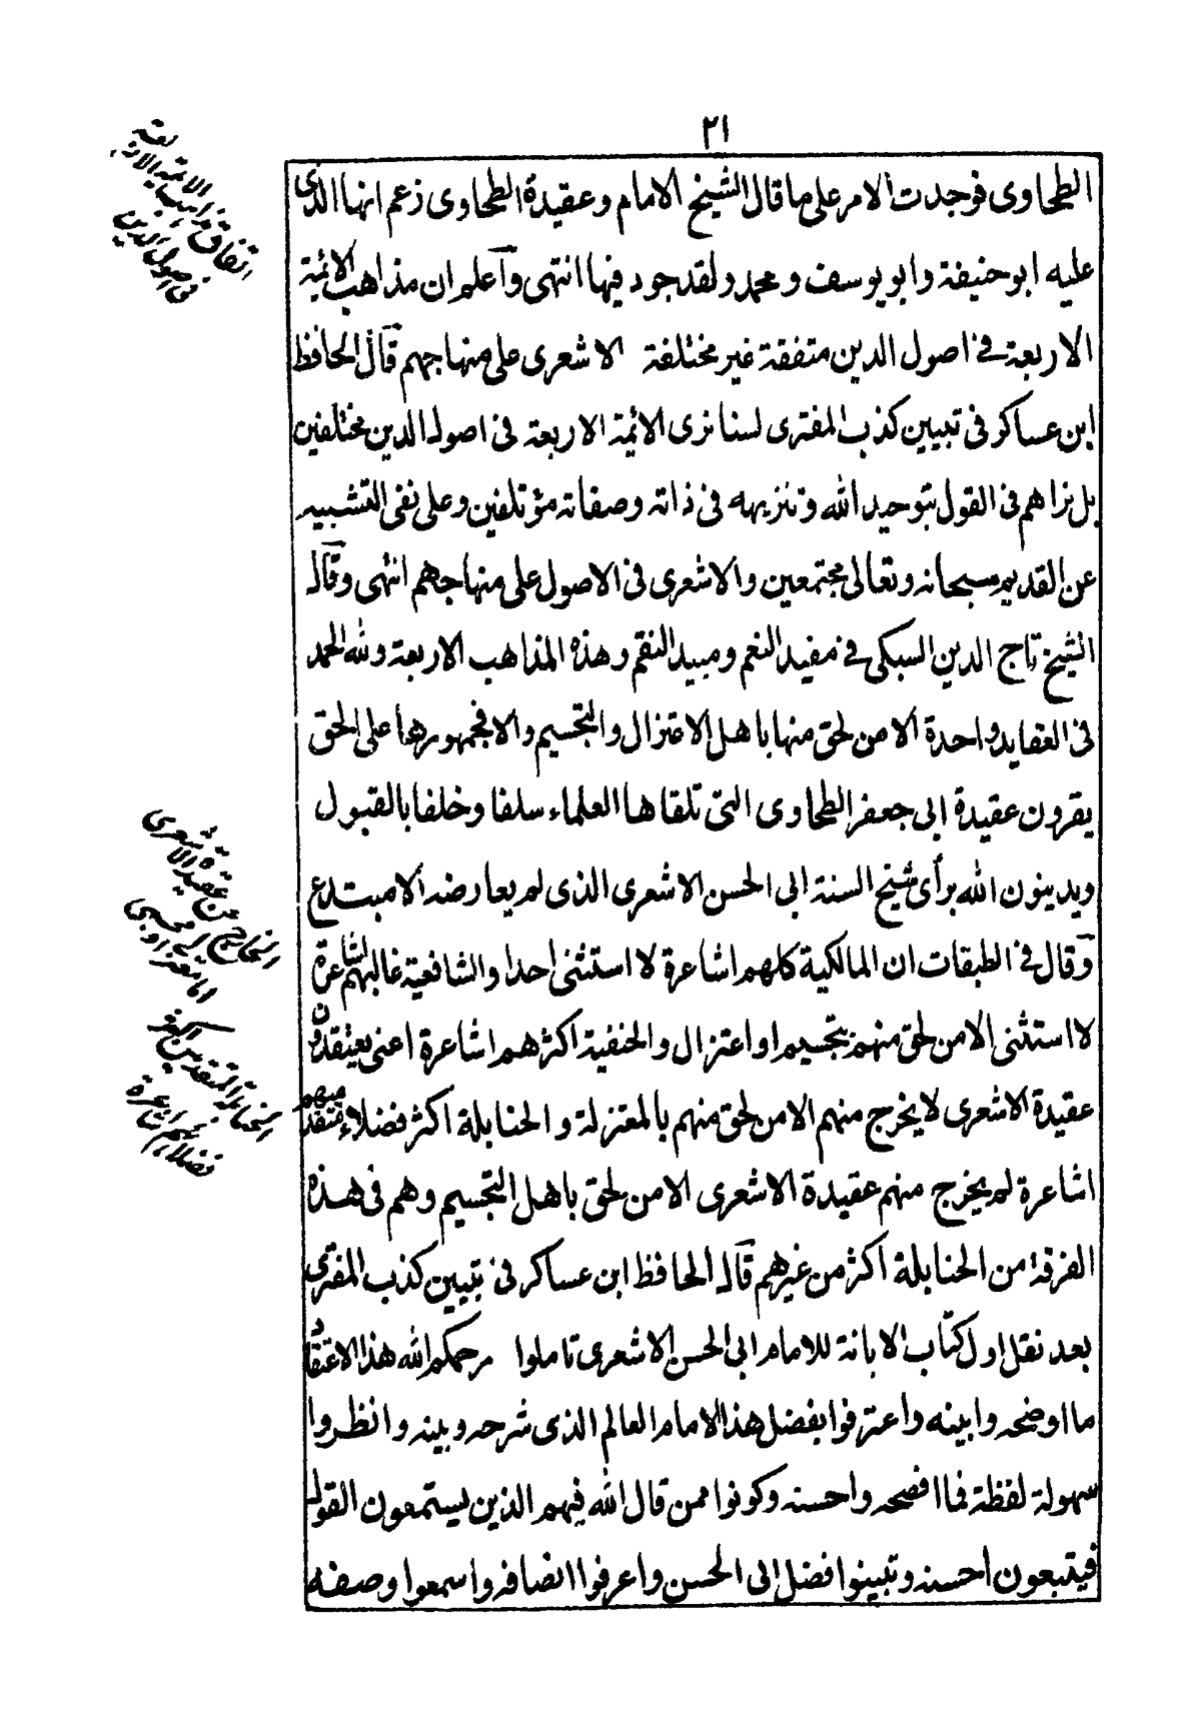 ٢١
الطحاوى فوجدت الامر على ما قال الشيخ الامام وعقيدة الطحاوى زعم انها الذى
عليه ابو حنيفة وابو يوسف ومحمد ولقد جود فيها انتهى وآعلم ان مذاهب الائمة
الاربعة فى اصول الدين متفقة غير مختلفة الاشعرى على منهاجهم قال الحافظ
ابن عساكر فى تبيين كذب المفترى لسنا نرى الائمة الاربعة فى اصول الدين مختلفين
بل نراهم فى القول بتوحيد الله وتنزيهه فى ذاته وصفاته مؤتلفين وعلى نفى التشبيه
عن القديم سبحانه وتعالى مجتمعين والاشعرى فى الاصول على منهاجهم انتهى وقال
الشيخ تاج الدين السبكى فى مفيد النعم ومبيد النقم وهذه المذاهب الاربعة ولله الحمد
فى العقايد واحدة الا من لحق منها باهل الاعتزال والتجسيم والا فجمهورها على الحق
يقرون عقيدة ابى جعفر الطحاوى التى تلقاها العلماء سلفا وخلفا بالقبول
ويدينون الله برأى شيخ السنة ابى الحسن الاشعرى الذى لم يعارضه الا مبتدع
وقال فى الطبقات ان المالكية كلهم اشاعرة لا استثنى احدا والشافعية غالبهم اشاعرة
لا استثنى الا من لحق منهم بتجسيم او اعتزال والحنفية اكثرهم اشاعرة اعنى يعتقدون
عقيدة الاشعرى لا يخرج منهم الا من لحق منهم بالمعتزلة والحنابلة اكثر فضلاء متقدميهم
اشاعرة لم يخرج منهم عقيدة الاشعرى الا من لحق باهل التجسيم وهم فى هذه
الفرقة من الحنابلة اكثر من غيرهم قال الحافظ ابن عساكر فى تبيين كذب المفترى
بعد نقل اول كتاب الابانة للامام ابى الحسن الاشعرى تاملوا رحمكم الله هذا الاعتقاد
ما اوضحه وابينه واعترفوا بفضل هذا الامام العالم الذى شرحه وبينه وانظروا
سهولة لفظة فما افصحه واحسنه وكونوا ممن قال الله فيهم الذين يستمعون القول
فيتبعون احسنه وتبينوا فضل ابى الحسن واعرفوا انصافه واسمعوا وصفه
اتفاق مذاهب الائمة الاربعة
فى اصول الدين
الخارج عن عقيدة الاشعرى
اما معتزلى او مجسم